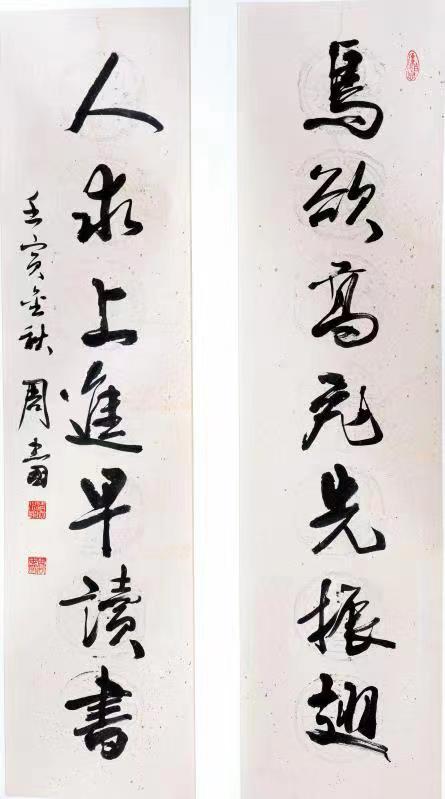 鳥欲高飛先振翅
人求上進早讀書
壬寅金秋 周